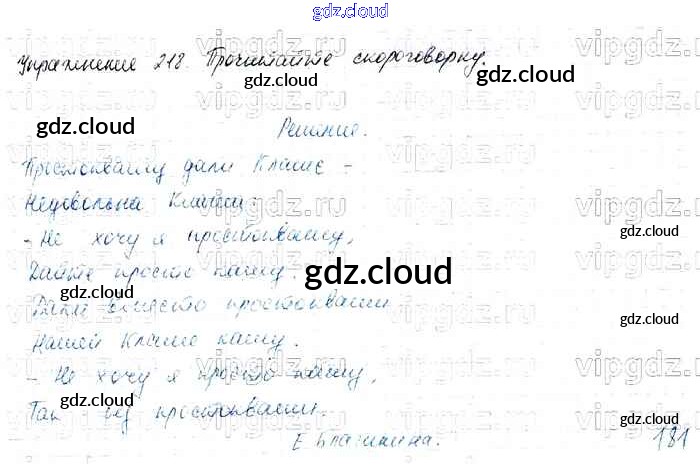 gdz.cloud
Упражнение 218. Прочитайте скороговорку.
gdz.cloud
gdz.cloud
Решение.
Простоквашу дали Клаше –
Недовольна Клаша:
– Не хочу я простоквашу,
Дайте просто кашу.
Дали вместо простокваши
Нашей Клаше кашу.
– Не хочу я просто кашу,
Так без простокваши.
Е. Благинина.
181
vipgdz.ru
gdz.cloud
gdz.cloud
gdz.cloud
gdz.cloud
gdz.cloud
gdz.cloud
gdz.cloud
gdz.cloud